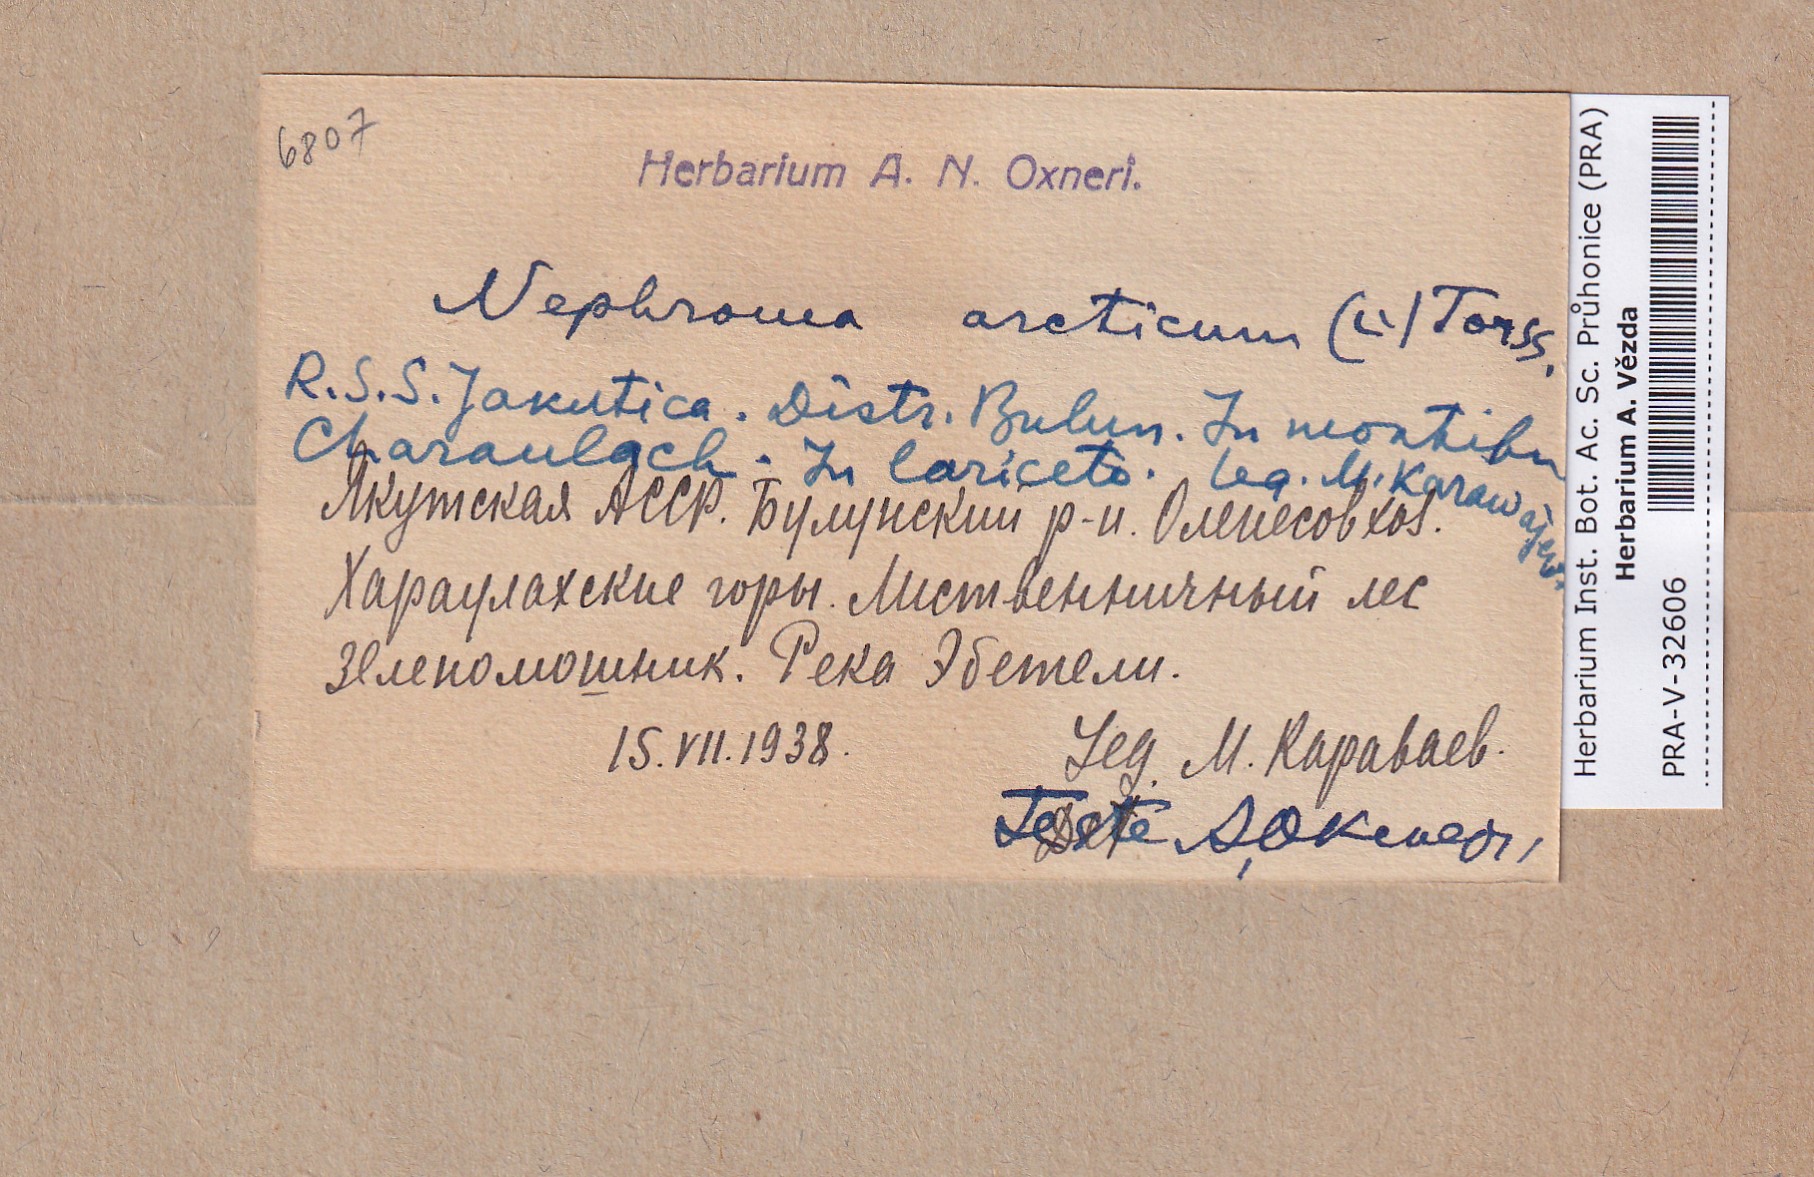 6807
Herbarium A. N. Oxneri.
Nephroma arcticum (L.) Torss.
R.S.S. Jakutica. Distr. Bulun. In montibus
Charaulach. In lariceto. Leg. M. Karawajew.
Якутская АССР. Булунский р-н. Оленесовхоз.
Хараулахские горы. Лиственничный лес
зеленомошник. Река Эбетели.
15.VII.1938.
Leg. М. Караваев.
Teste А. Окснер,
Herbarium Inst. Bot. Ac. Sc. Průhonice (PRA)
Herbarium A. Vězda
PRA-V-32606